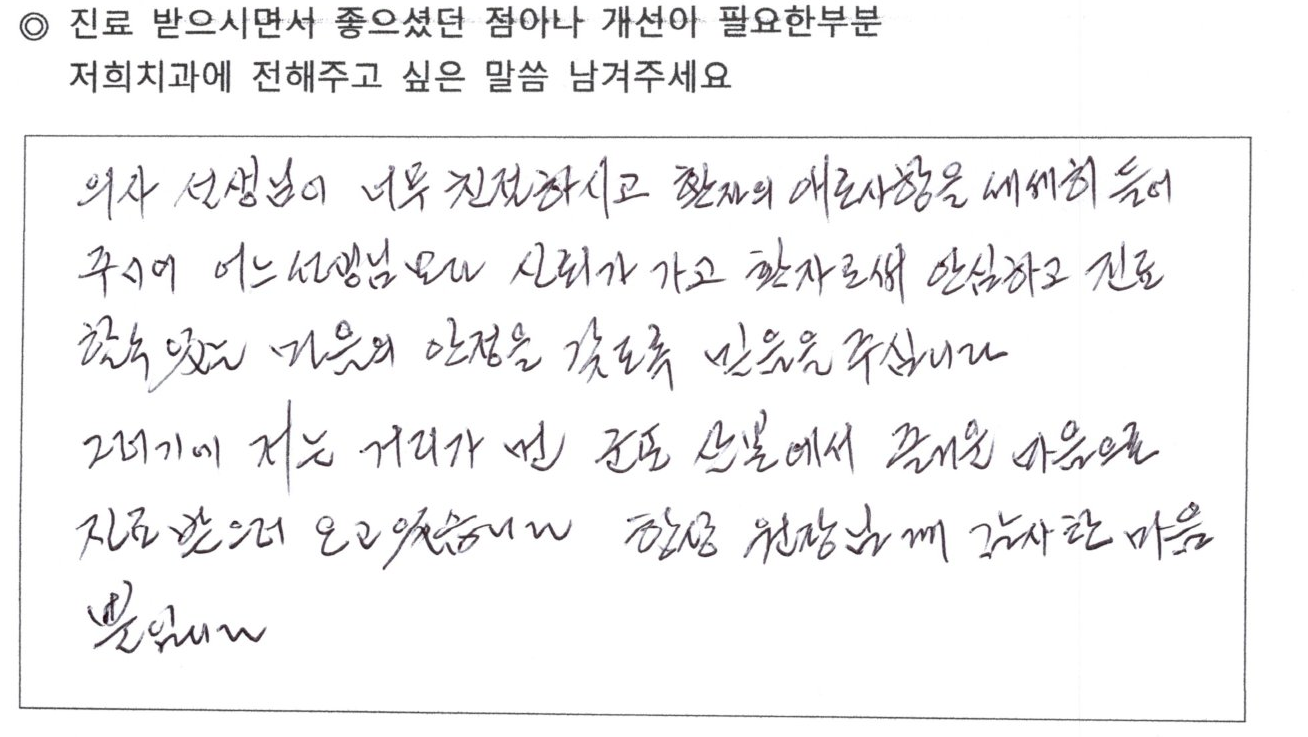 ◎ 진료 받으시면서 좋으셨던 점아나 개선아 필요한부분
저희치과에 전해주고 싶은 말씀 남겨주세요
의사 선생님이 너무 친절하시고 환자의 애로사항을 세세히 들어
주시어 어느 선생님 보다 신뢰가 가고 환자로써 안심하고 진료
할수 있는 마음의 안정을 갖도록 믿음을 주십니다
그러기에 저는 거리가 먼 군포 산본에서 즐거운 마음으로
진료 받으러 오고 있습니다 항상 원장님께 감사한 마음
뿐입니다